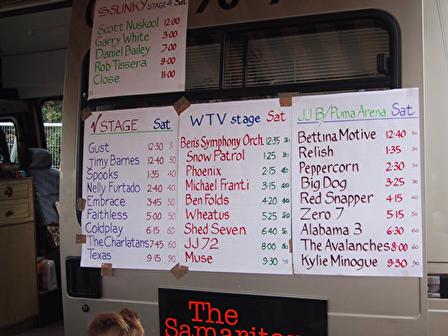 SSLINKY STAGE 4 Sat
Scott Nuskool 12:00
Garry White 3:00
Daniel Bailey 7:00
Rob Tissera 9:00
Close 11:00
V STAGE Sat
Gust 12:30 5
Jimy Barnes 12:40 30
Spooks 1:35 40
Nelly Furtado 2:40 40
Embrace 3:45 50
Faithless 5:00 50
Coldplay 6:15 60
The Charlatans 7:45 60
Texas 9:15 90
WTV stage Sat
Ben's Symphony Orch. 12:35
Snow Patrol 1:25 30
Phoenix 2:15
Michael Franti 3:15 40
Ben Folds 4:20 40
Wheatus 5:25 50
Shed Seven 6:40 50
JJ 72 8:00
Muse 9:30 75
JJB/Puma Arena Sat
Bettina Motive 12:40
Relish 1:35
Peppercorn 2:30
Big Dog 3:25 30
Red Snapper 4:15
Zero 7 5:15 50
Alabama 3 6:30
The Avalanches 8:00 60
Kylie Minogue 9:30 90
The
Samaritans